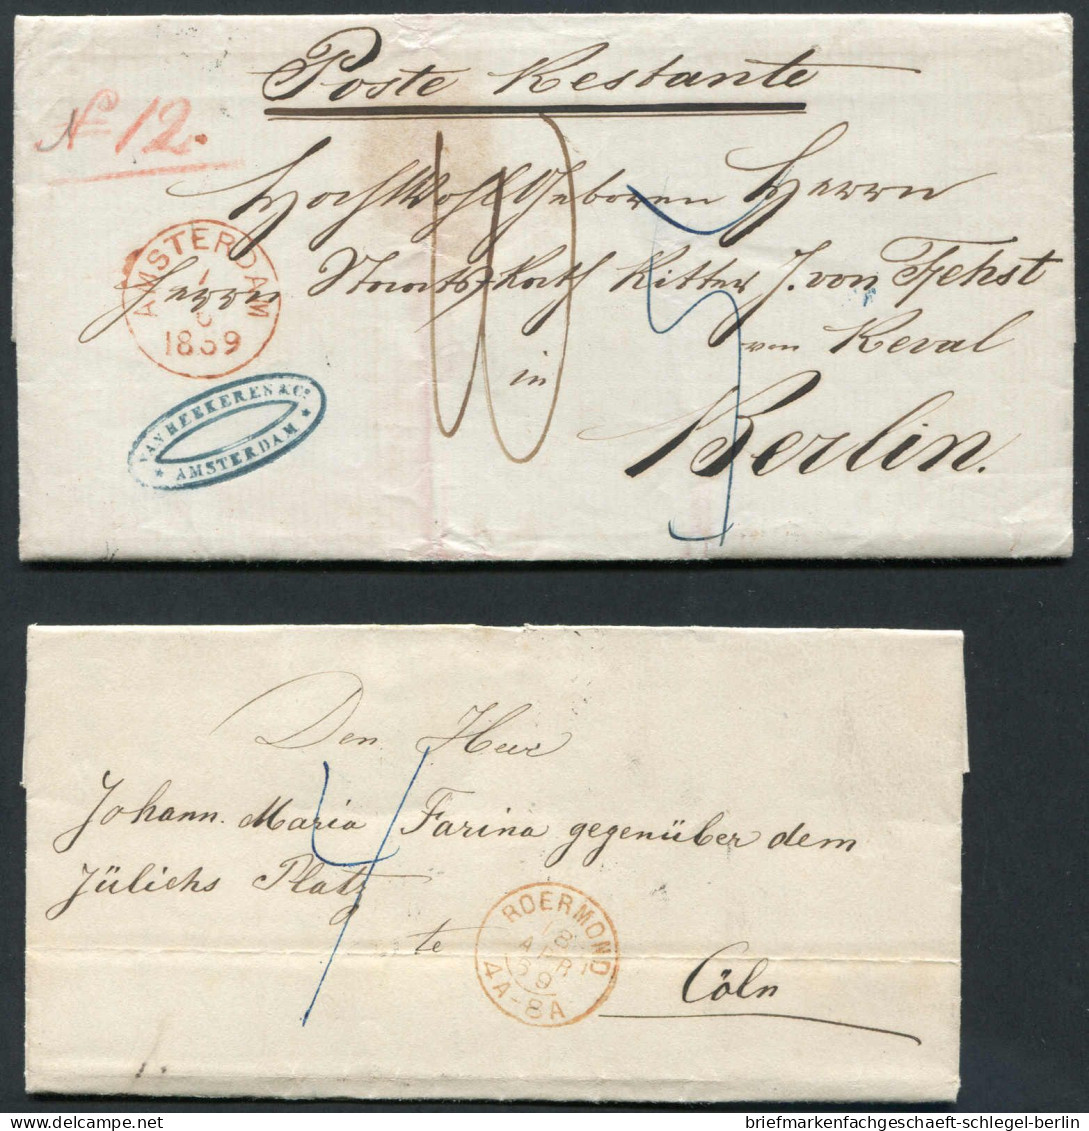 Poste Restante
No 12.
HochWohlGeboren Herrn
Herrn Staats-Rath Ritter J. von Fehst
von Reval
in
Berlin.
AMSTERDAM
VAN HEEKEREN & Co.
AMSTERDAM
5
Den Heer
Johann Maria Farina gegenüber dem
Jülichs Platz
4
te
Cöln
ROERMOND
18
APR
69
4A-8A
briefmarkenfachgeschaeft-schlegel-berlin